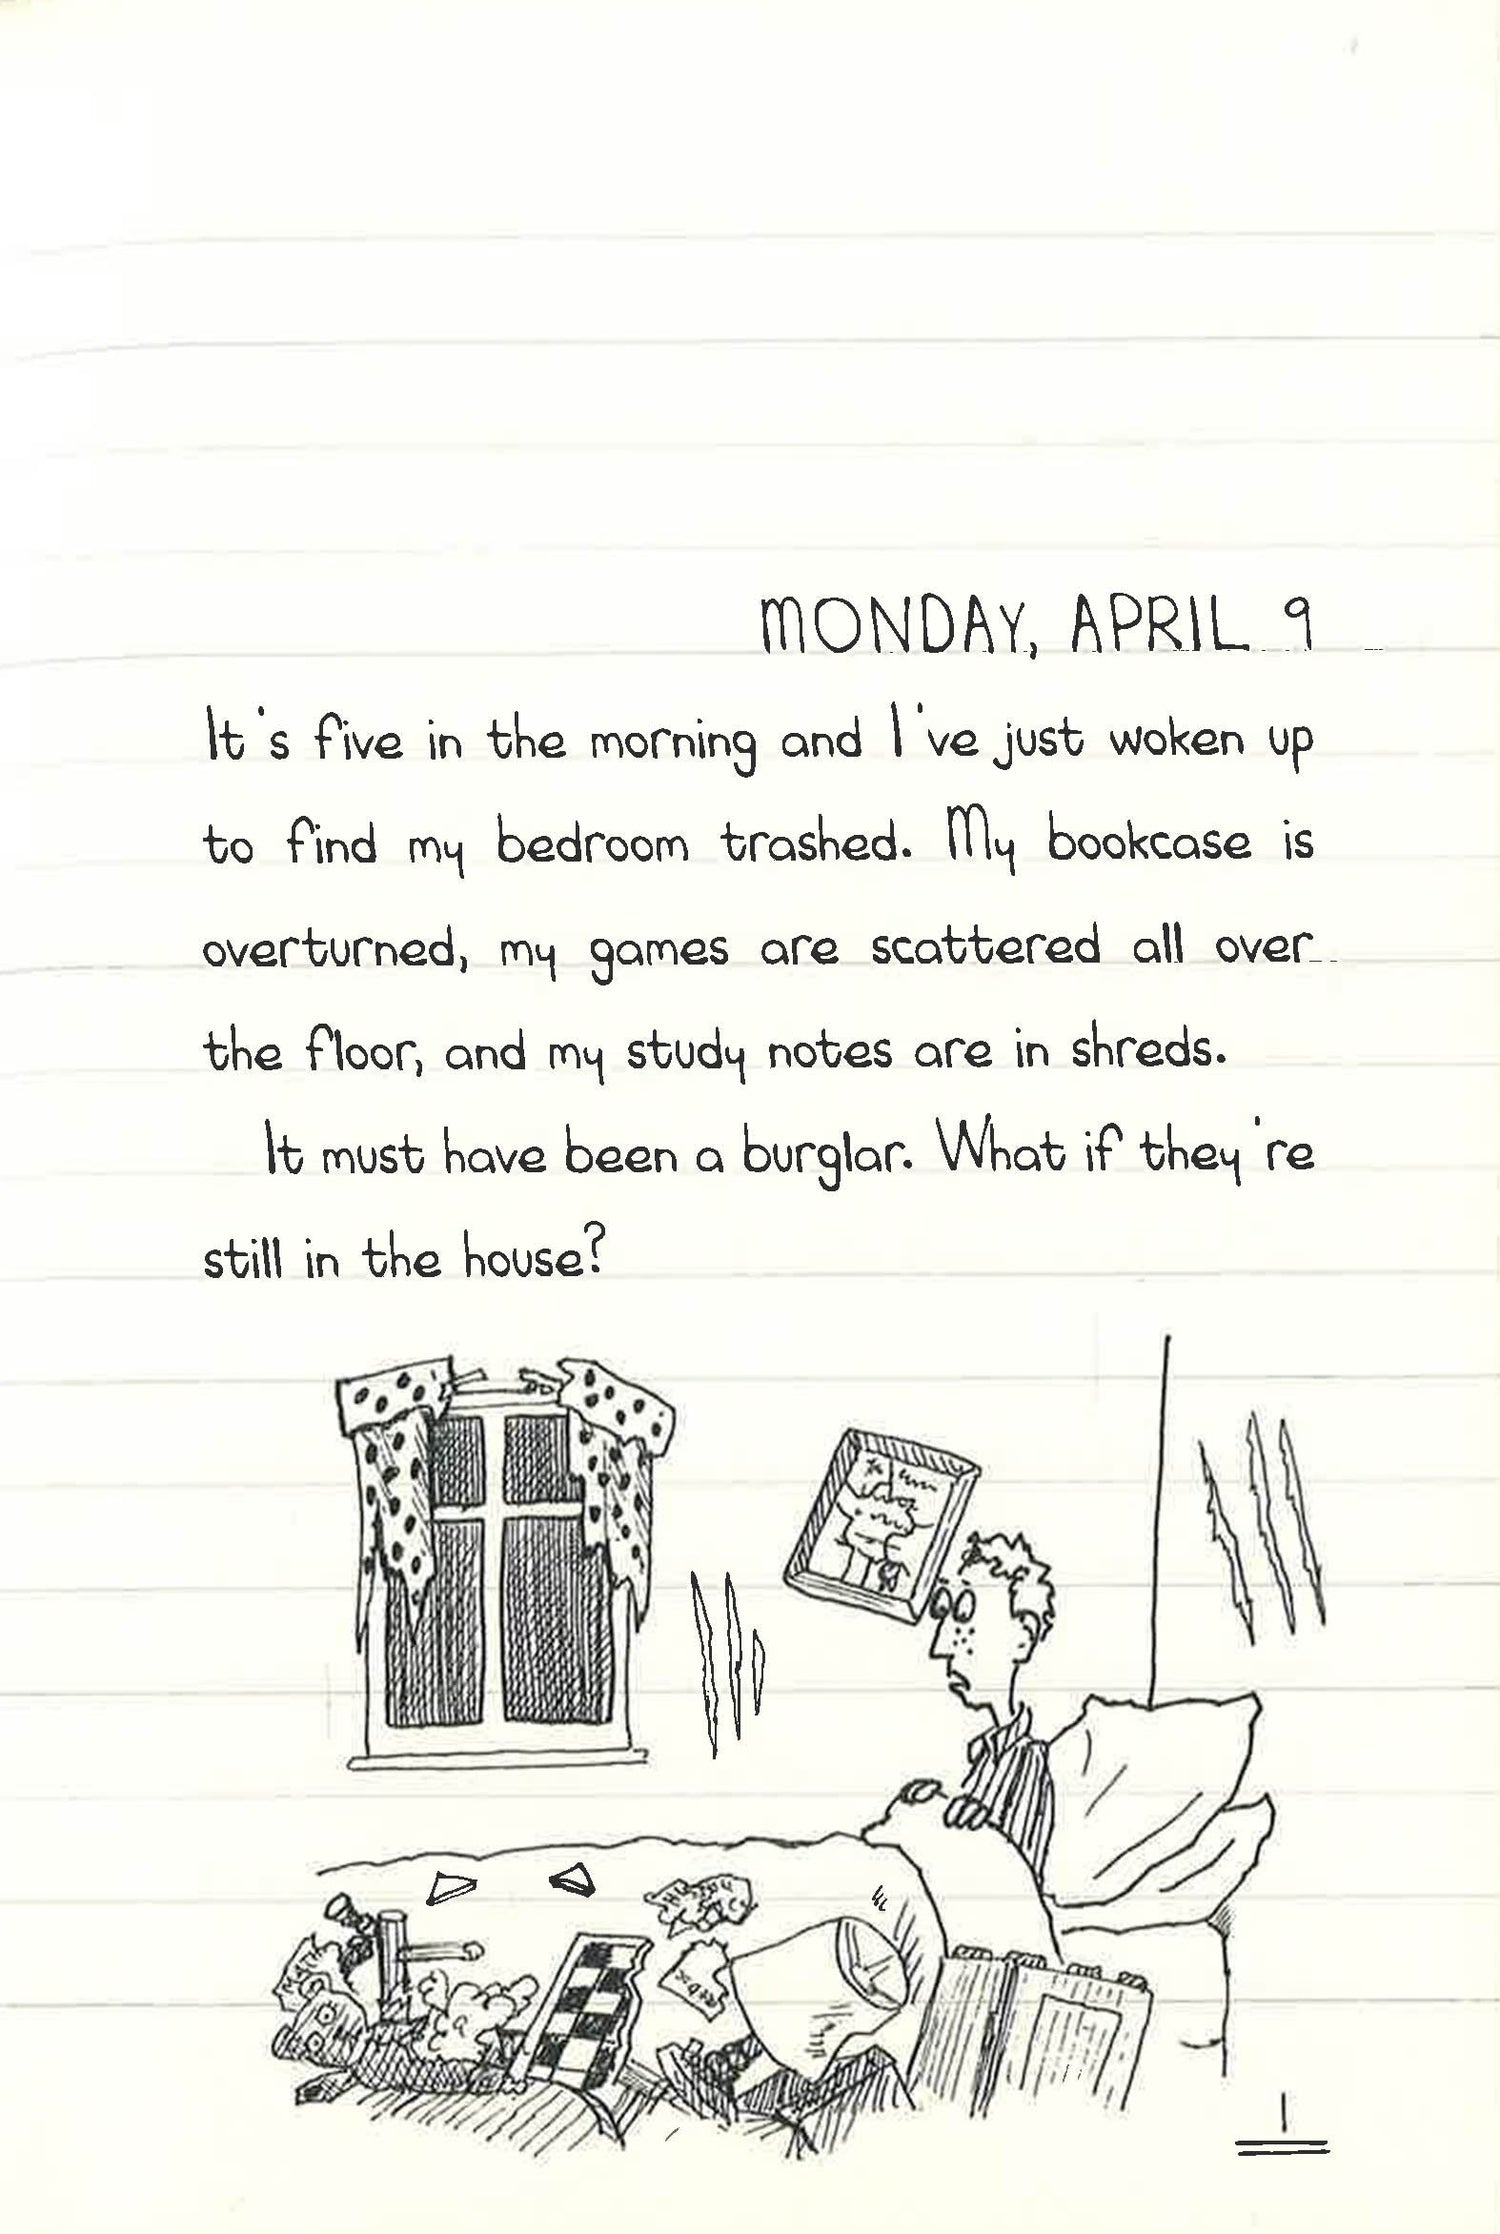 MONDAY, APRIL 9
It's five in the morning and I've just woken up
to find my bedroom trashed. My bookcase is
overturned, my games are scattered all over
the floor, and my study notes are in shreds.
It must have been a burglar. What if they're
still in the house?
1